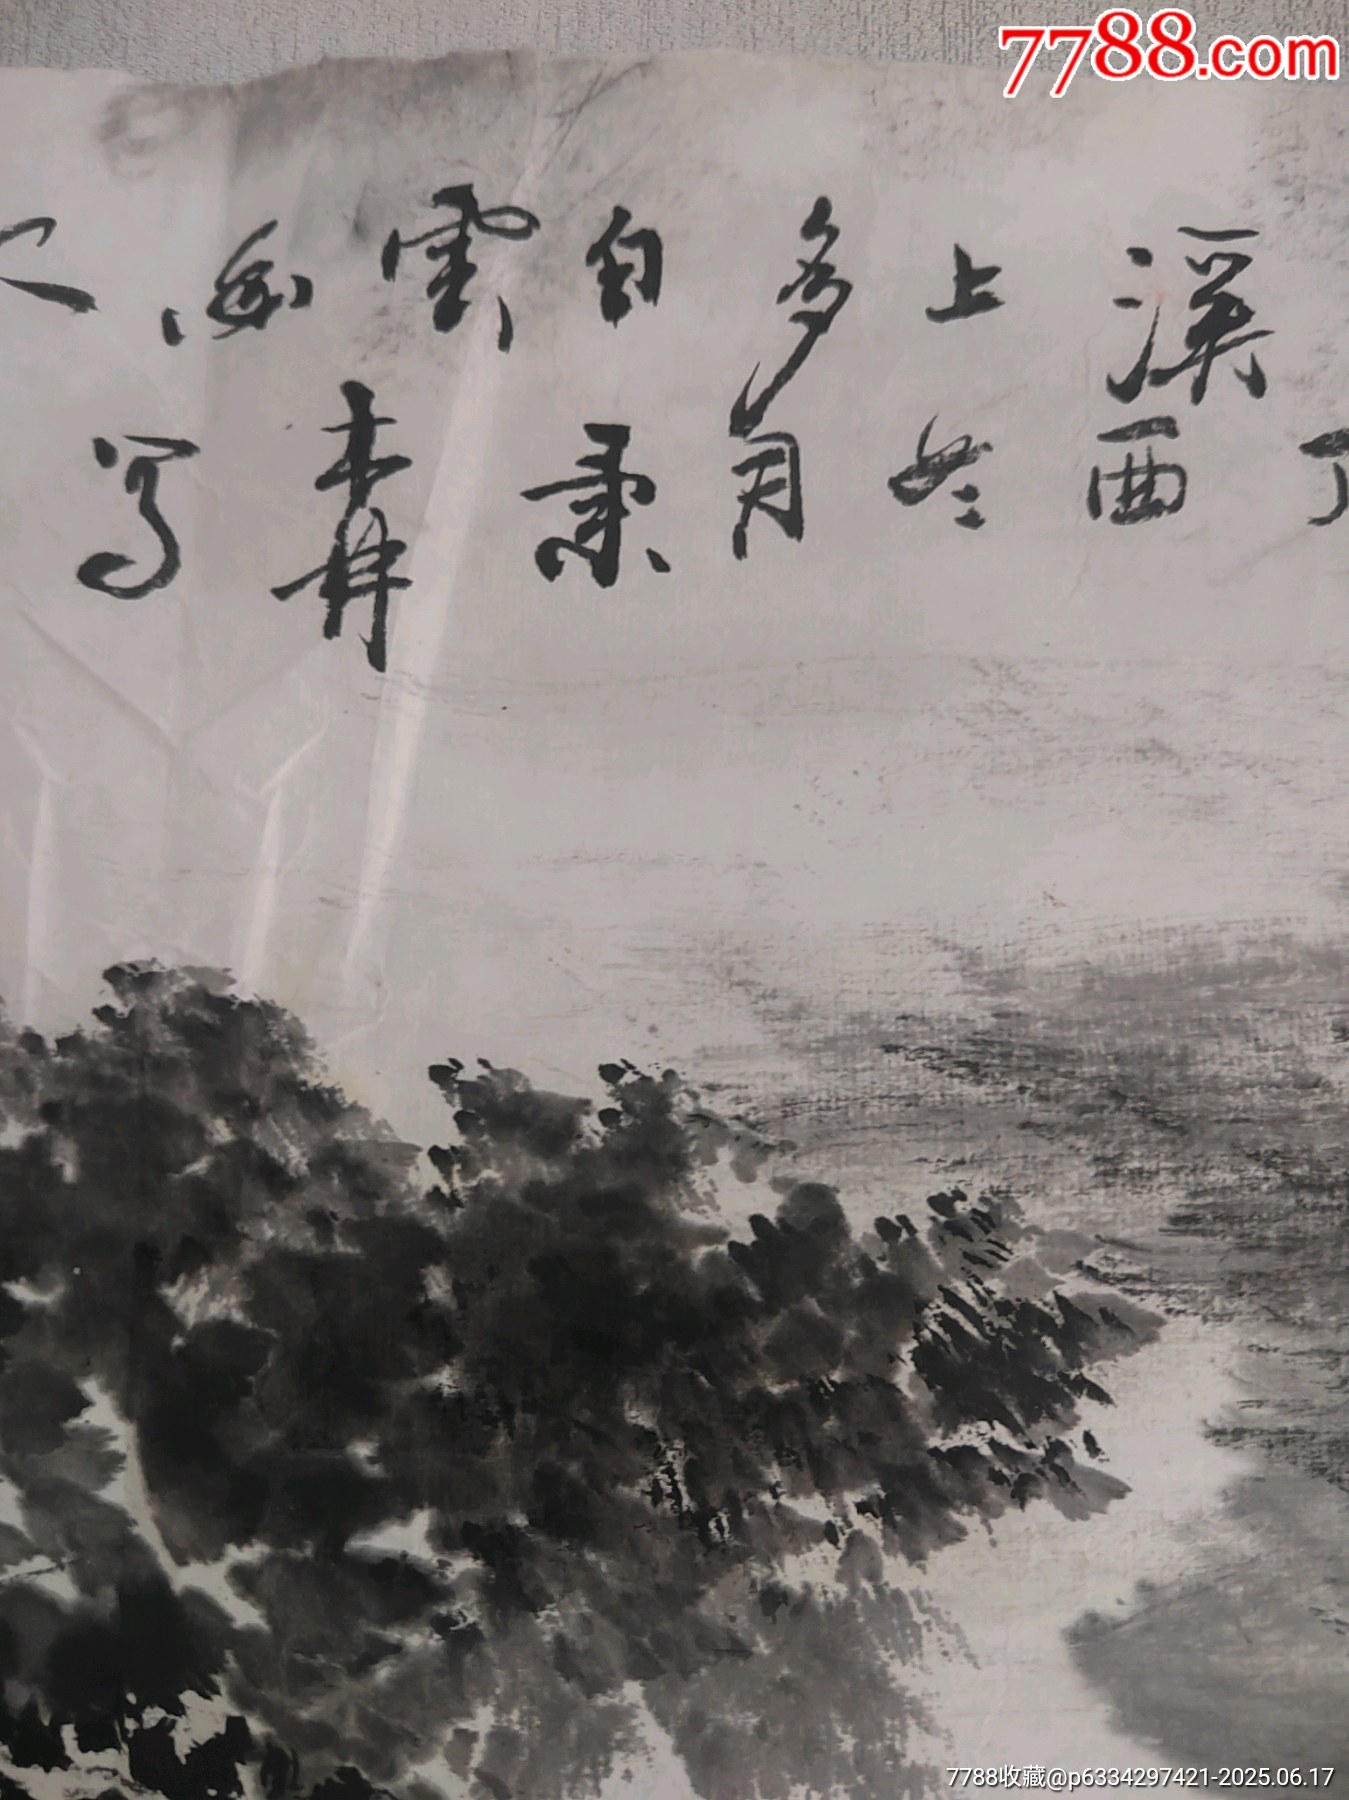 7788.com
溪上多白雲
丁酉冬月秉寫
7788收藏@p6334297421-2025.06.17